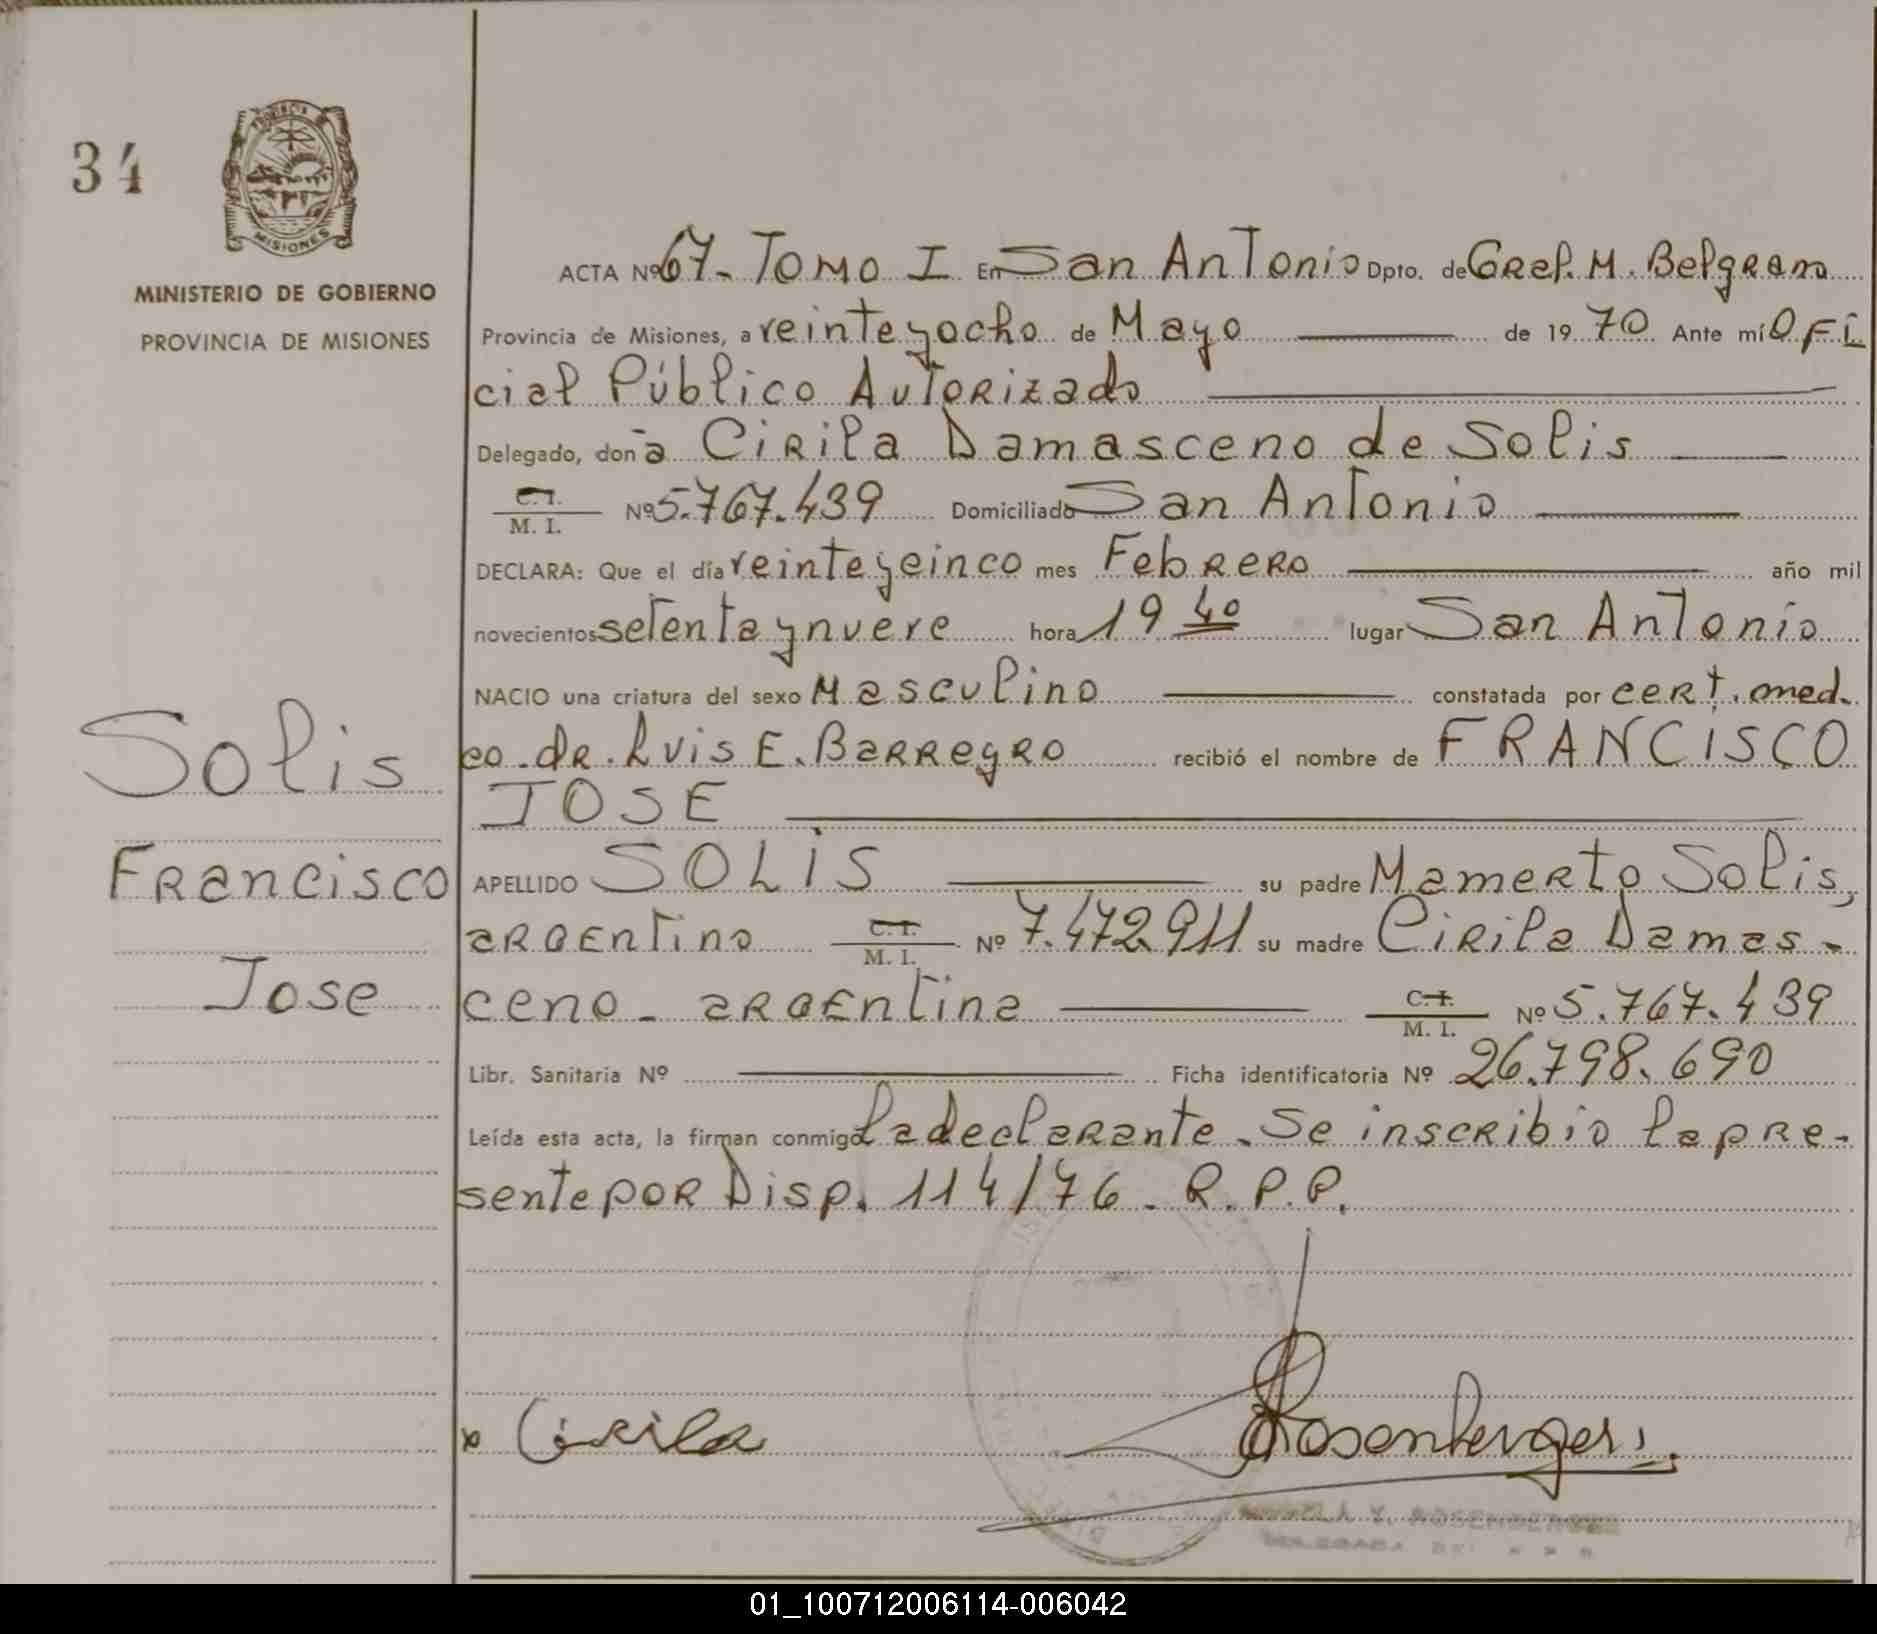 34
PROVINCIA
MISIONES
MINISTERIO DE GOBIERNO
PROVINCIA DE MISIONES
ACTA Nº 67- Tomo I En San Antonio Dpto. de Gral. M. Belgrano
Provincia de Misiones, a veinteyocho de Mayo de 1970 Ante mí Ofi
cial Público Autorizado
Delegado, doña Cirila Damasceno de Solis
C. I.
M. I. Nº 5.767.439 Domiciliado San Antonio
DECLARA: Que el día veinteycinco mes Febrero año mil
novecientos setentaynueve hora 19 40 lugar San Antonio
NACIO una criatura del sexo Masculino constatada por cert. med.
co. dr. Luis E. Barreyro recibió el nombre de FRANCISCO
JOSE
Solis
Francisco
Jose
APELLIDO SOLIS su padre Mamerto Solis,
argentino C. I.
M. I. Nº 7.472.911 su madre Cirila Damas-
ceno - argentina C. I.
M. I. Nº 5.767.439
Libr. Sanitaria Nº Ficha identificatoria Nº 26.798.690
Leída esta acta, la firman conmigo la declarante. Se inscribio la pre-
sente por Disp. 114/76 - R.P.P.
x Cirila
Rosenberger
Y. ROSENBERGER
01_100712006114-006042